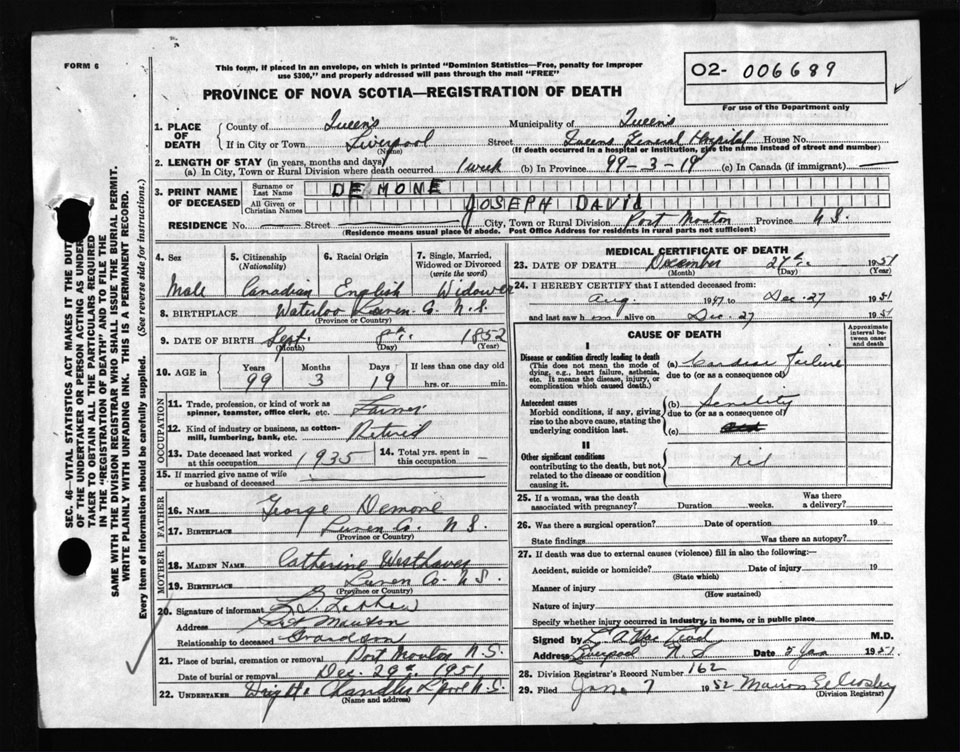 FORM 6
This form, if placed in an envelope, on which is printed "Dominion Statistics—Free, penalty for improper
use $300," and properly addressed will pass through the mail "FREE"
O2- 006689
For use of the Department only
PROVINCE OF NOVA SCOTIA—REGISTRATION OF DEATH
SEC. 46—VITAL STATISTICS ACT MAKES IT THE DUTY
OF THE UNDERTAKER OR PERSON ACTING AS UNDER-
TAKER TO OBTAIN ALL THE PARTICULARS REQUIRED
IN THE "REGISTRATION OF DEATH" AND TO FILE THE
SAME WITH THE DIVISION REGISTRAR WHO SHALL ISSUE THE BURIAL PERMIT.
WRITE PLAINLY WITH UNFADING INK. THIS IS A PERMANENT RECORD.
Every item of information should be carefully supplied. (See reverse side for instructions.)
1. PLACE OF DEATH
County of Queens Municipality of Queens
If in City or Town Liverpool Street Queens General Hospital House No.
(Name) (If death occurred in a hospital or institution, give the name instead of street and number)
2. LENGTH OF STAY (in years, months and days)
(a) In City, Town or Rural Division where death occurred 1 week (b) In Province 99-3-19 (c) In Canada (if immigrant) —
3. PRINT NAME OF DECEASED
Surname or Last Name DEMONE
All Given or Christian Names JOSEPH DAVID
RESIDENCE No. — Street — City, Town or Rural Division Port Mouton Province N.S.
(Residence means usual place of abode. Post Office Address for residents in rural parts not sufficient)
4. Sex Male
5. Citizenship (Nationality) Canadian
6. Racial Origin English
7. Single, Married, Widowed or Divorced (write the word) Widower
8. BIRTHPLACE Waterloo Lunen. Co. N.S.
(Province or Country)
9. DATE OF BIRTH Sept. 8th 1852
(Month) (Day) (Year)
10. AGE in Years 99 Months 3 Days 19 If less than one day old hrs. or min.
OCCUPATION
11. Trade, profession, or kind of work as spinner, teamster, office clerk, etc. Farmer
12. Kind of industry or business, as cotton-mill, lumbering, bank, etc. Retired
13. Date deceased last worked at this occupation 1935 14. Total yrs. spent in this occupation —
15. If married give name of wife or husband of deceased
FATHER
16. NAME George Demone
17. BIRTHPLACE Lunen Co. N.S.
(Province or Country)
MOTHER
18. MAIDEN NAME Catherine Westhaver
19. BIRTHPLACE Lunen Co. N.S.
(Province or Country)
20. Signature of informant
Address Port Mouton
Relationship to deceased Grandson
21. Place of burial, cremation or removal Port Mouton N.S.
Date of burial or removal Dec. 29th 1951
22. UNDERTAKER Chandler L'pool N.S.
(Name and address)
MEDICAL CERTIFICATE OF DEATH
23. DATE OF DEATH December 27th 1951
(Month) (Day) (Year)
24. I HEREBY CERTIFY that I attended deceased from:
Aug. 1947 to Dec. 27 1951
and last saw him alive on Dec. 27 1951
CAUSE OF DEATH
Approximate interval between onset and death
I
Disease or condition directly leading to death
(This does not mean the mode of dying, e.g., heart failure, asthenia, etc. It means the disease, injury, or complication which caused death.)
(a) Cardiac Failure
due to (or as a consequence of)
Antecedent causes
Morbid conditions, if any, giving rise to the above cause, stating the underlying condition last.
(b) Senility
due to (or as a consequence of)
(c)
II
Other significant conditions
contributing to the death, but not related to the disease or condition causing it.
nil
25. If a woman, was the death associated with pregnancy? Duration weeks. Was there a delivery?
26. Was there a surgical operation? Date of operation 19
State findings Was there an autopsy?
27. If death was due to external causes (violence) fill in also the following:—
Accident, suicide or homicide? Date of injury 19
(State which)
Manner of injury
(How sustained)
Nature of injury
Specify whether injury occurred in industry, in home, or in public place
Signed by M.D.
Address Liverpool N.S. Date 5 Jan 1951
28. Division Registrar's Record Number 162
29. Filed Jan. 7 1952 Marion E. Crosby
(Division Registrar)